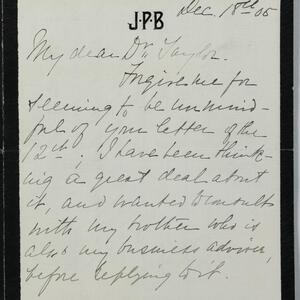 J·P·B
Dec. 18th 05
My dear Dr Taylor.
Forgive me for
seeming to be unmind-
ful of your letter of the
12th, I have been think-
ing a great deal about
it, and wanted to consult
with my brother who is
also my business adviser,
before replying to it.